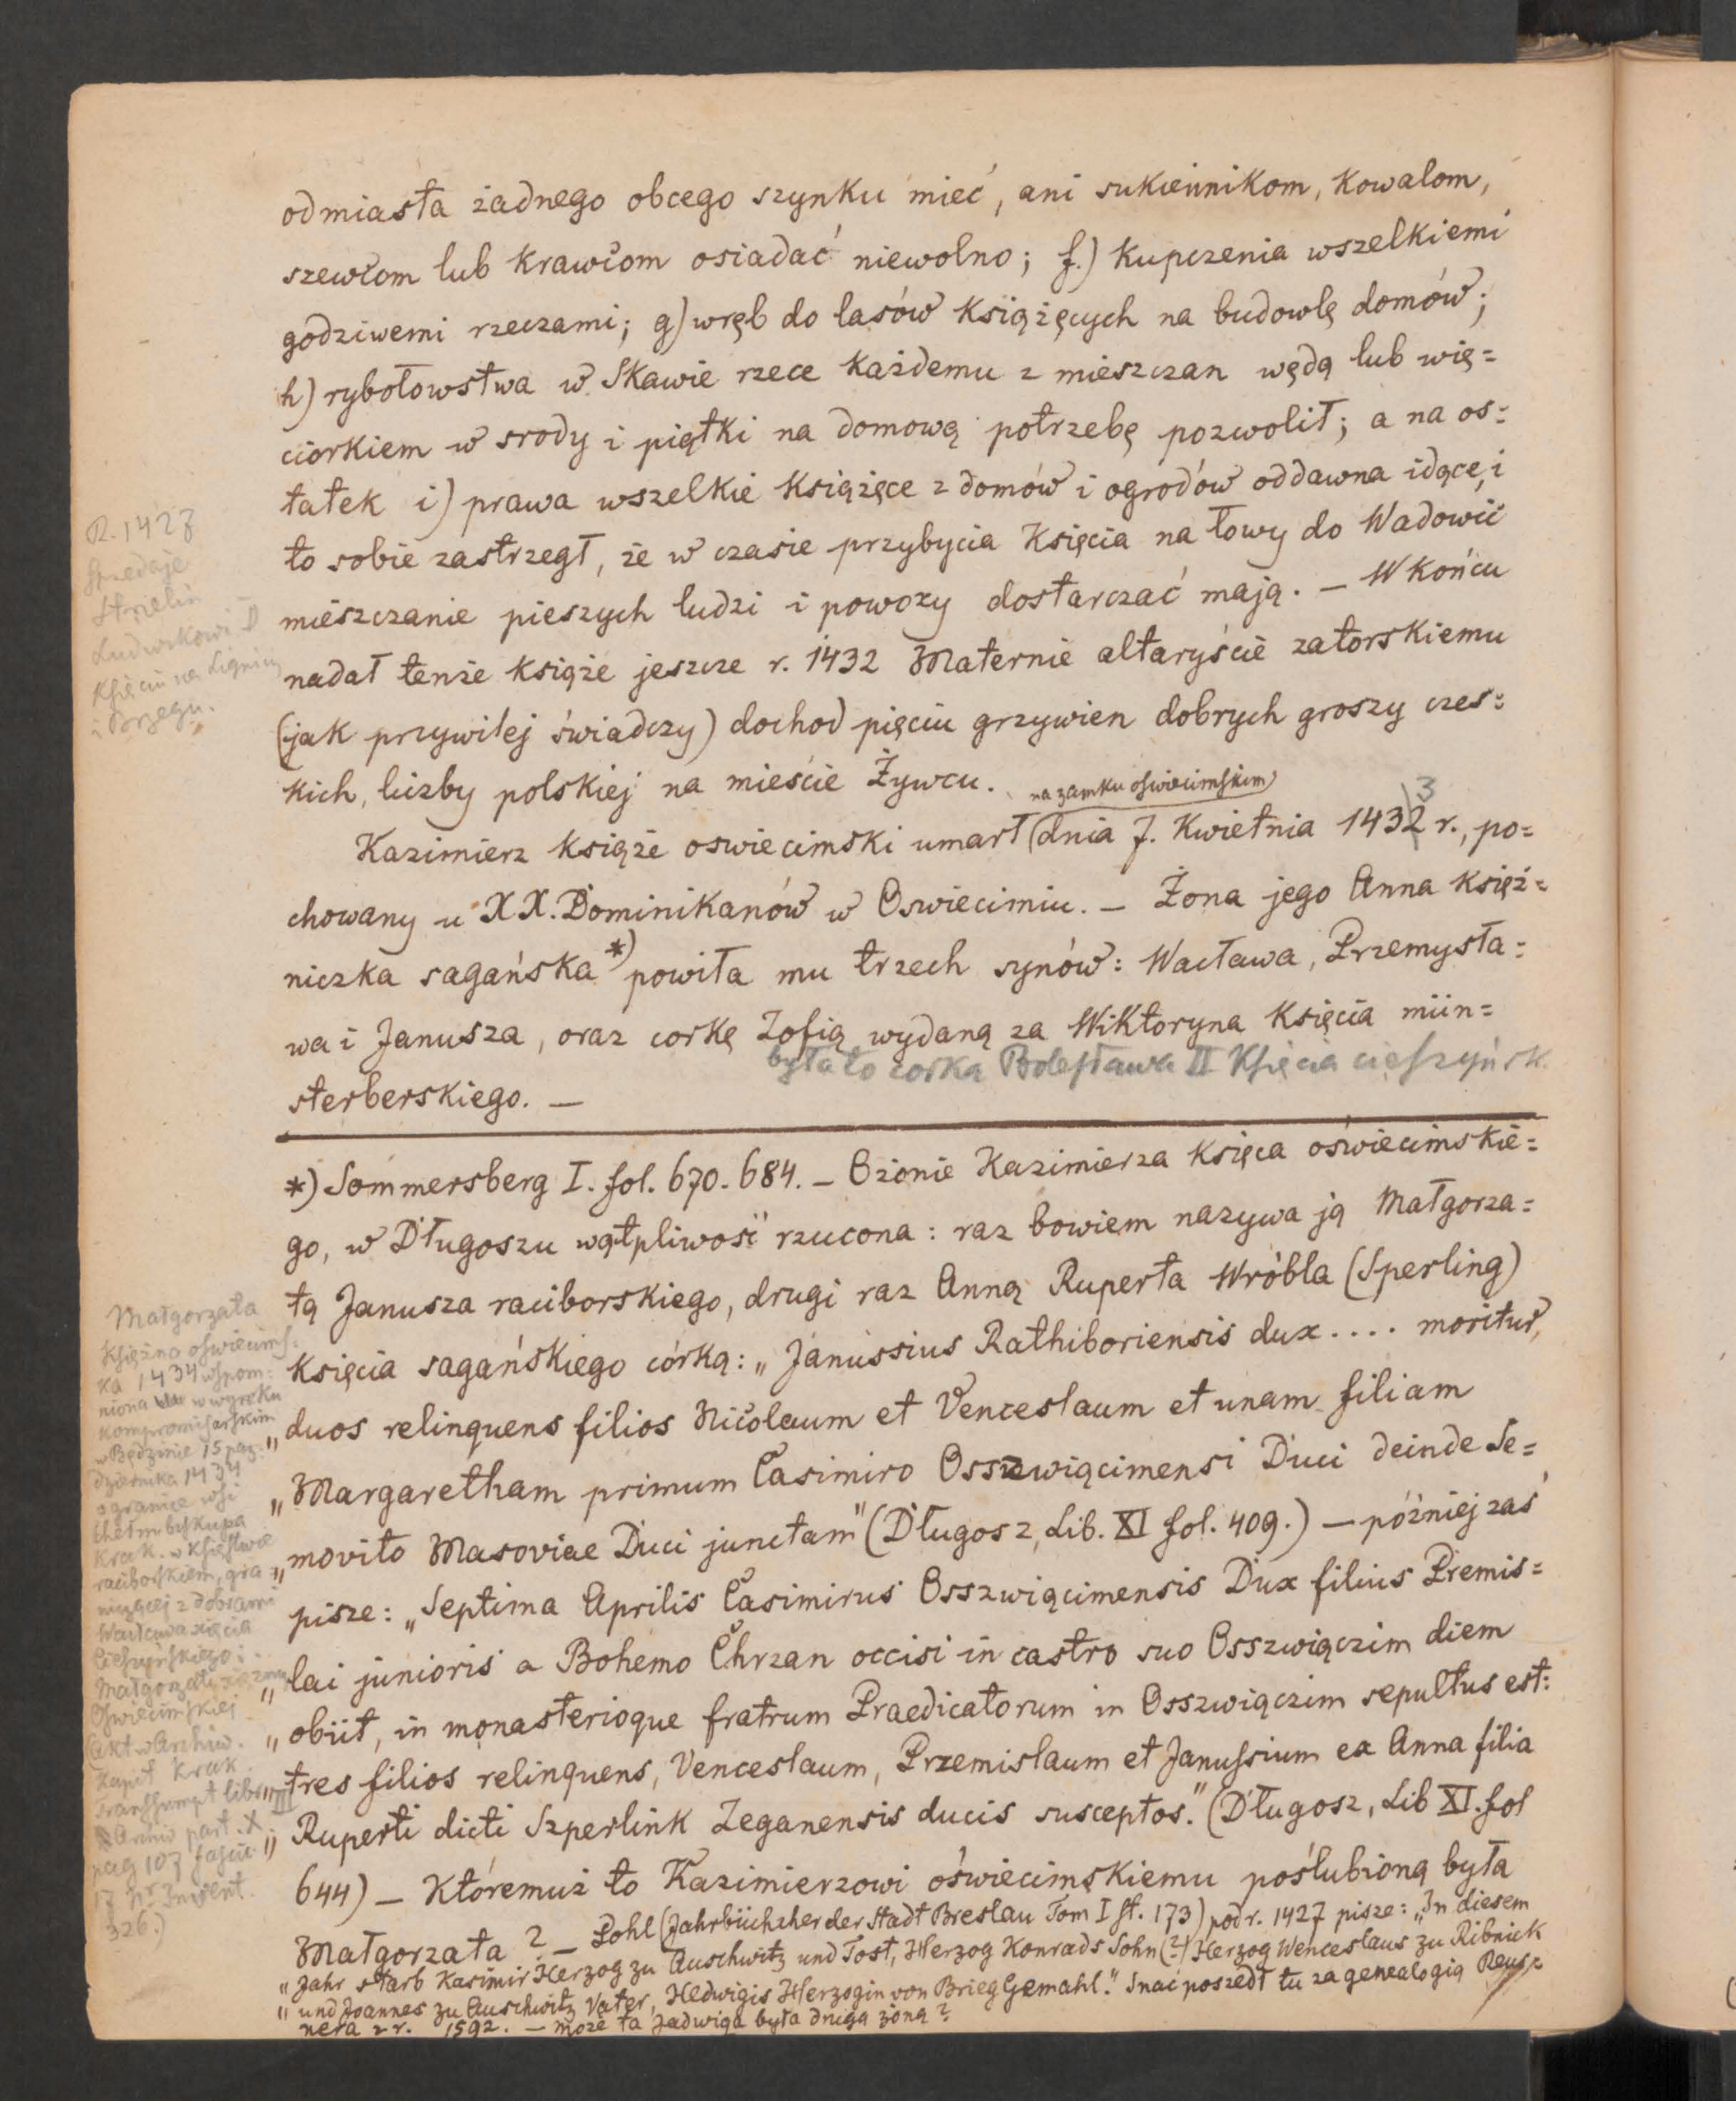 od miasta żadnego obcego szynku mieć, ani sukiennikom, kowalom,
szewcom lub krawcom osiadać niewolno; f.) kupczenia wszelkiemi
godziwemi rzeczami; g) wręb do lasów książęcych na budowlę domów;
h) rybołowstwa w Skawie rzece każdemu z mieszczan wędą lub wię=
ciorkiem w srody i piątki na domową potrzebę pozwolił; a na os=
tatek i) prawa wszelkie książęce z domów i ogrodów oddawna idące, i
to sobie zastrzegł, że w czasie przybycia Księcia na łowy do Wadowic
mieszczanie pieszych ludzi i powozy dostarczać mają. — W końcu
nadał tenże książe jeszcze r. 1432 Maternie altaryście zatorskiemu
(jak przywilej świadczy) dochod pięciu grzywien dobrych groszy czes=
kich, liczby polskiej na mieście Żywcu.
na zamku oswiecimskim
3
Kazimierz książe oswiecimski umarł dnia 7. Kwietnia 1432 r., po=
chowany u XX. Dominikanów w Oswiecimiu. — Żona jego Anna księż=
niczka sagańska *) powiła mu trzech synów: Wacława, Przemysła=
wa i Janusza, oraz corkę Zofią wydaną za Wiktoryna Księcia mün=
była to corka Bolesława II Księcia cieszyńsk.
sterberskiego. —
*) Sommersberg I. fol. 670. 684. — O żonie Kazimierza Księca oświecimskie=
go, w Długoszu wątpliwość rzucona: raz bowiem nazywa ją Małgorza=
tą Janusza raciborskiego, drugi raz Anną Ruperta Wróbla (Sperling)
Księcia sagańskiego córką: „Janussius Rathiboriensis dux .... moritur,
„duos relinquens filios Nicolaum et Venceslaum et unam filiam
„Margaretham primum Casimiro Osszwiącimensi Duci deinde Se=
„movito Masoviae Duci junctam" (Długosz, Lib. XI fol. 409.) — później zaś
pisze: „Septima Aprilis Casimirus Osszwiącimensis Dux filius Premis=
„lai junioris a Bohemo Chrzan occisi in castro suo Osszwiączim diem
„obiit, in monasterioque fratrum Praedicatorum in Osszwiączim sepultus est:
„tres filios relinquens, Venceslaum, Przemislaum et Janussium ex Anna filia
„Ruperti dicti Szperlink Zeganensis ducis susceptos." (Długosz, Lib XI. fol
644) — Któremuż to Kazimierzowi oświecimskiemu poślubioną była
Małgorzata? — Pohl (Jahrbüchzher der Stadt Breslau Tom I st. 173) pod r. 1427 pisze: „In diesem
„Jahr starb Kasimir Herzog zu Auschwitz und Tost, Herzog Konrads Sohn (?) Herzog Wenceslaus zu Ribnick
„und Joannes zu Auschwitz Vater, Hedwigis Herzogin von Brieg Gemahl." Snać poszedł tu za genealogią Reus=
nera z r. 1592. — może ta Jadwiga była drugą żoną?
R. 1427
Sprzedaje
Strzelin
Ludwikowi II
Księciu na Lignicy
i Brzegu.
Małgorzata
Księżna oswiecims=
ka 1434 wspom=
niona w wyroku
kompromisarskim
w Będzinie 15 paź=
dziernika 1434
o granice wsi
Chełm biskupa
Krak. w Księstwie
raciborskiem, gra=
niczącej z dobrami
Wacława xięcia
Cieszyńskiego i
Małgorzaty xiężny
Oswiecimskiej
(Akt w Archiw.
Kapit Krak.
Transsumpt libr. III
Archiv part. X
pag 107 fascic.
17 nr Invent.
326.)